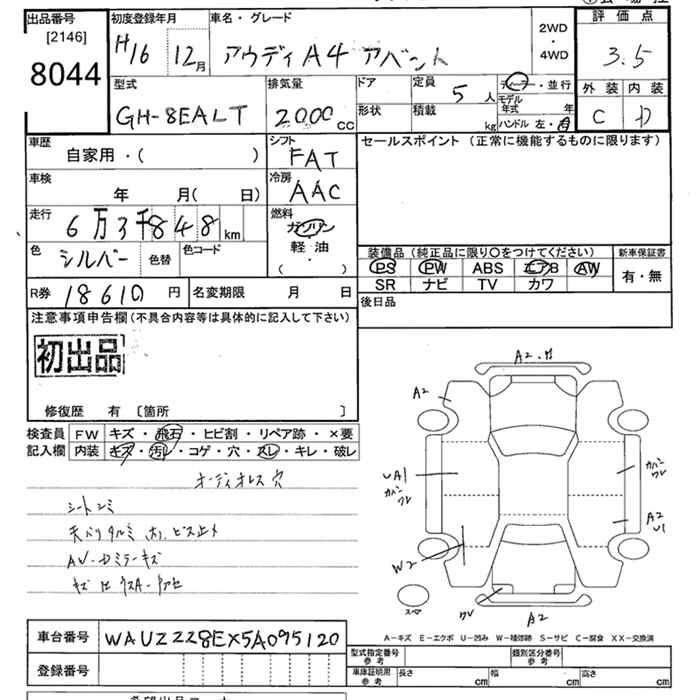 出品番号
[2146]
8044
初度登録年月
H16 12月
車名・グレード
アウディA4 アバント
2WD
・
4WD
評価点
3.5
外装 内装
C D
型式
GH-8EALT
排気量
2000 cc
ドア
形状
定員
5人
積載
kg
ディーラー・並行
モデル年式 年
ハンドル 左・右
車歴
自家用・( )
シフト
FAT
セールスポイント (正常に機能するものに限ります)
車検
年 月( 日)
冷房
AAC
走行
6万3千848km
燃料
ガソリン
軽・油
( ・ )
色
シルバー
色替
色コード
装備品 (純正品に限り○をつけてください)
新車保証書
PS PW ABS エアB AW
有・無
SR ナビ TV カワ
R券 18610 円
名変期限 月 日
後日品
注意事項申告欄 (不具合内容等は具体的に記入して下さい)
初出品
修復歴 有 〔箇所 〕
検査員記入欄
FW キズ・飛石・ヒビ割・リペア跡・×要
内装 キズ・汚レ・コゲ・穴・スレ・キレ・破レ
オーディオレス穴
シートシミ
天バリタルミ 有. ビス止メ
A2
UA1
W2
A2
U1
A2
スペア
A-キズ E-エクボ U-凹み W-補修跡 S-サビ C-腐食 XX-交換済
車台番号 WAUZZZ8EX5A095120
登録番号
型式指定番号 参考
類別区分番号 参考
車庫証明用 参考
長さ cm
幅 cm
高さ cm